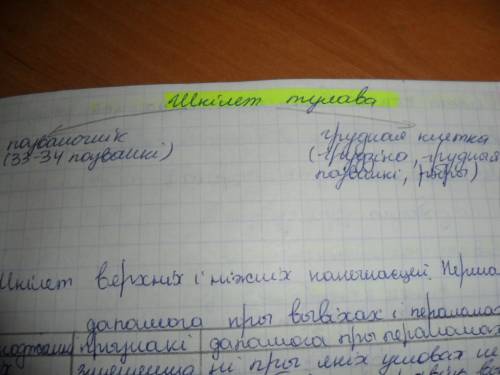 Шкілет тулава
пазваночнік грудная клетка
(33-34 пазванкі) (грудзіна, грудныя
пазванкі, рэбры)
Шкілет верхніх і ніжніх канечнасцей. Перша
дапамога пры вывіхах і пераломах
прызнакі дапамога пры пераломах
ні пры якіх умовах не